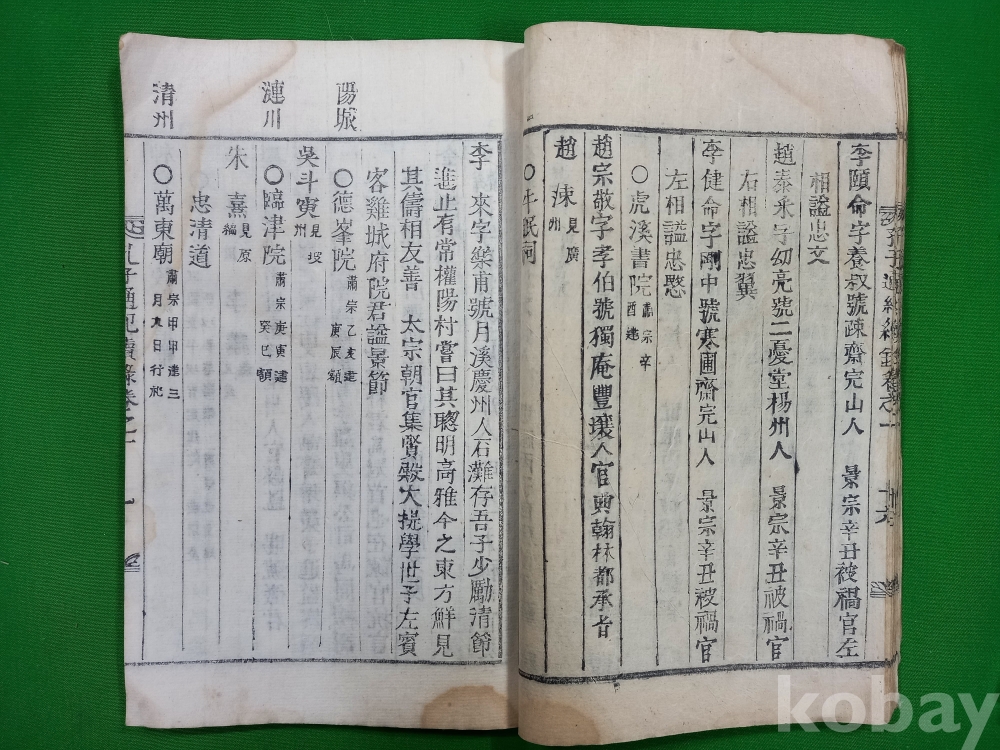 李頤命字養叔號疎齋完山人 景宗辛丑被禍官左
相謚忠文
趙泰采字幼亮號二憂堂楊州人 景宗辛丑被禍官
右相謚忠翼
李健命字剛中號寒圃齋完山人 景宗辛丑被禍官
左相謚忠愍
○虎溪書院 肅宗辛酉建
趙宗敬字孝伯號獨庵豐壤人官典翰林都承旨
趙涑 見廣州
○牛眠祠
陽城
漣川
清州
李來字樂甫號月溪慶州人石灘存吾子少勵清節
進止有常權陽村嘗曰其聰明高雅今之東方鮮見
其儔相友善 太宗朝官集賢殿大提學世子左賓
客雞城府院君謚景節
○德峯院 肅宗乙亥建庚辰額
吳斗寅 見坡州
○臨津院 肅宗庚寅建癸巳額
朱熹 見原編
忠清道
○萬東廟 肅宗甲申建三月九日行祀
孔子通紀續錄卷之一
kobay